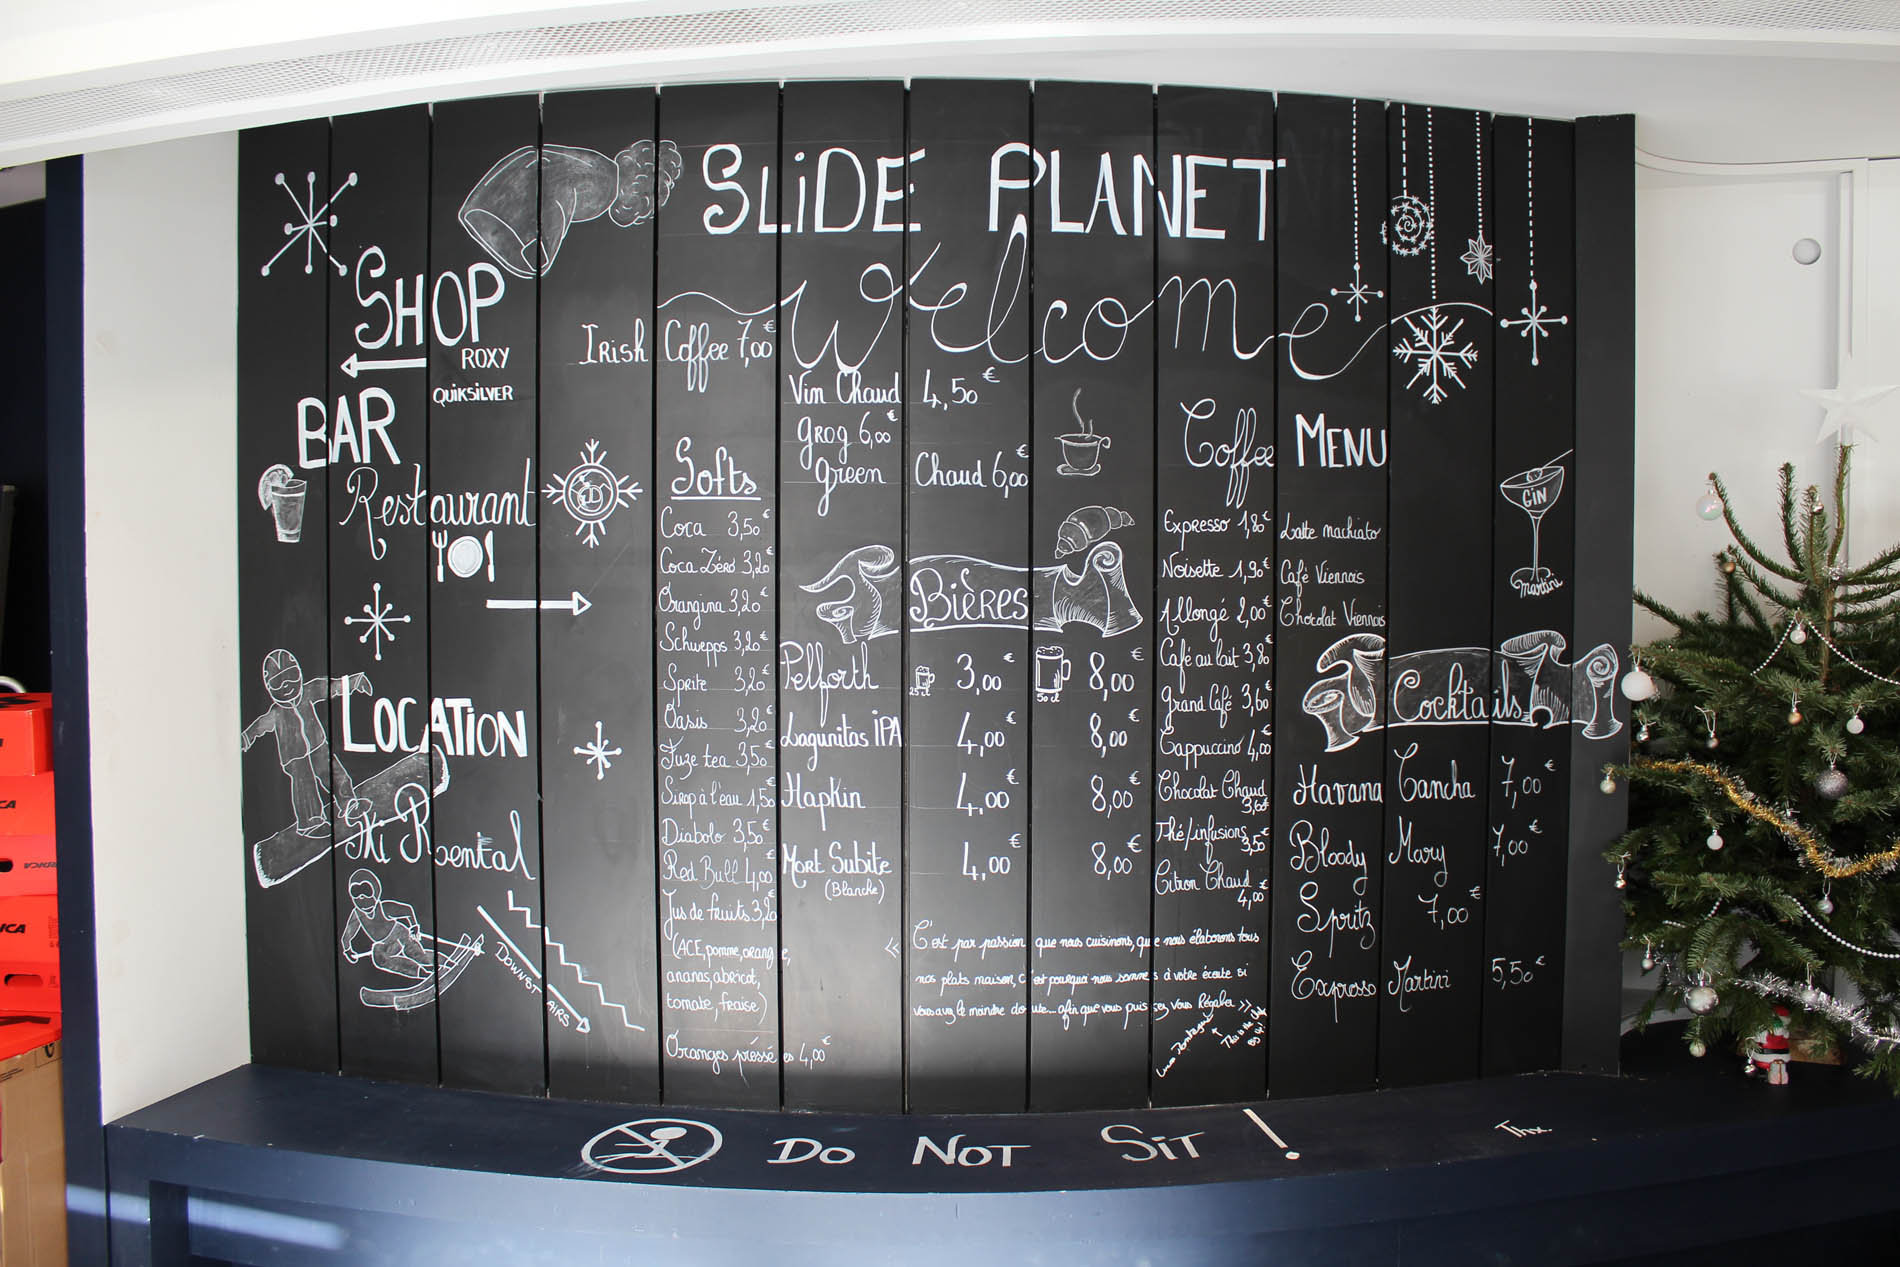 SLiDE PLANET
Welcome
SHOP
ROXY
QUIKSILVER
BAR
Restaurant
LOCATION
Ski Roental
DOWNSTAIRS
Irish Coffee 7,00€
Vin Chaud 4,50€
Grog 6,00€
Green Chaud 6,00€
Softs
Coca 3,50€
Coca Zéro 3,20€
Orangina 3,20€
Schwepps 3,20€
Sprite 3,20€
Oasis 3,20€
Fuze tea 3,50€
Sirop à l'eau 1,50€
Diabolo 3,50€
Red Bull 4,00€
Jus de fruits 3,20
(ACE, pomme, orange,
ananas, abricot,
tomate, fraise)
Oranges préssées 4,00€
Bières
Pelforth 25cl 3,00€ 50cl 8,00€
Lagunitas IPA 4,00€ 8,00€
Hapkin 4,00€ 8,00€
Mort Subite 4,00€ 8,00€
(Blanche)
« C'est par passion que nous cuisinons, que nous élaborons tous
nos plats maison, c'est pourquoi nous sommes à votre écoute si
vous avez le moindre doute... afin que vous puissiez vous Régaler »
Coffee MENU
Expresso 1,80€
Noisette 1,90€
Allongé 2,00€
Café au lait 3,80€
Grand Café 3,60€
Cappuccino 4,00€
Chocolat Chaud
3,60€
Thé/infusions
3,50€
Citron Chaud
4,00€
Latte machiato
Café Viennois
Chocolat Viennois
GIN
martini
Cocktails
Havana Cancha 7,00€
Bloody Mary 7,00€
Spritz 7,00€
Expresso Martini 5,50€
DO NOT SiT !
Thx.